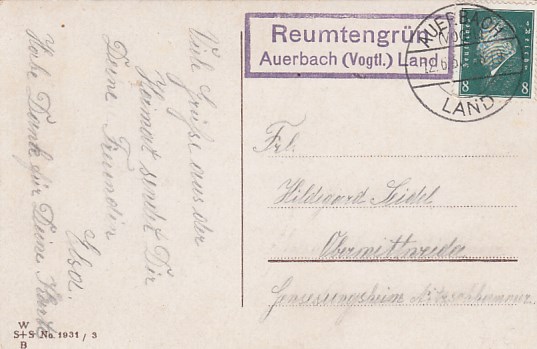 Reumtengrün
Auerbach (Vogtl.) Land
AUERBACH
LAND
8 8
Viele Grüße aus der
Heimat sendet Dir
Deine Freundin
Elsa.
Habe Dank für Deine Karte
Frl.
Hildegard Seidel
Obermittweida
Genesungsheim
W
S+S No. 1931 / 3
B